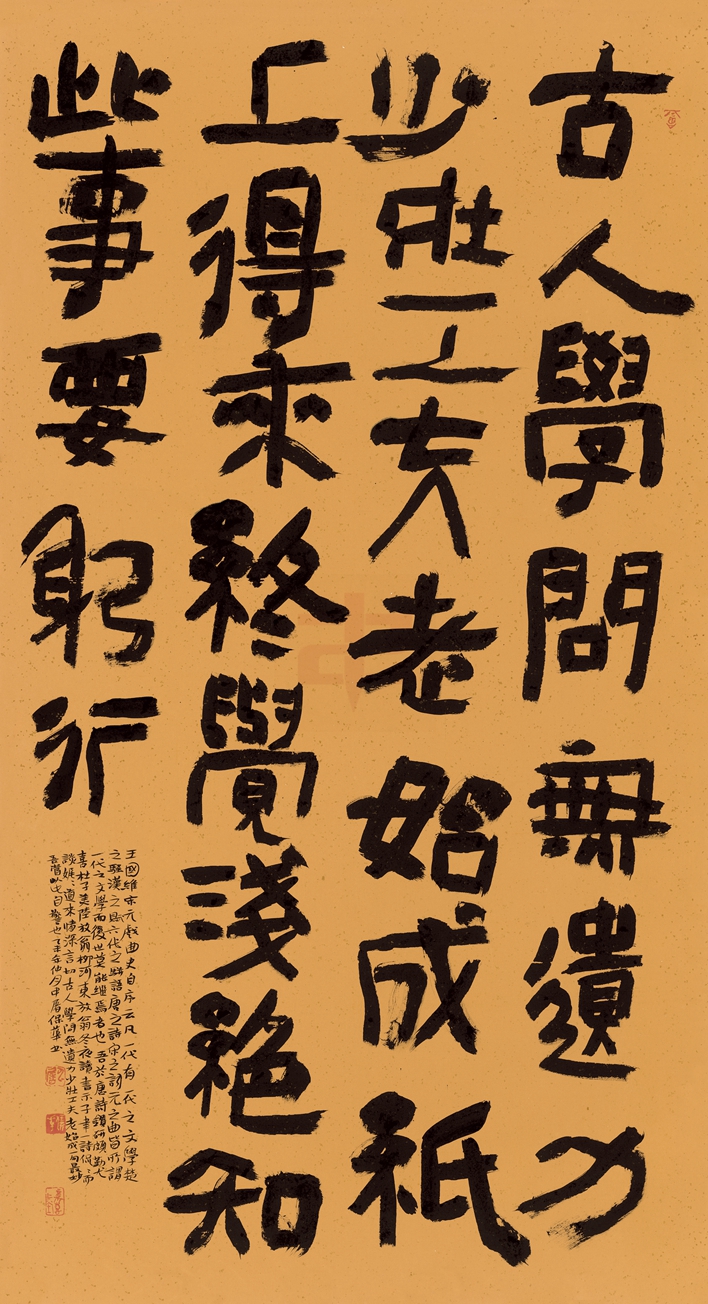 古人學問無遺力
少壯工夫老始成紙
上得來終覺淺絕知
此事要躬行
王國維宋元戲曲史自序云凡一代有一代之文學楚
之騷漢之賦六代之駢語唐之詩宋之詞元之曲皆所謂
一代之文學而後世莫能繼焉者也吾於唐詩鑽研頗勤尤
喜杜子美陸放翁柳河東放翁冬夜讀書示子聿一詩似
談娓娓道來情深言切古人學問無遺力少壯工夫老始成一句最妙
吾嘗以此自警也